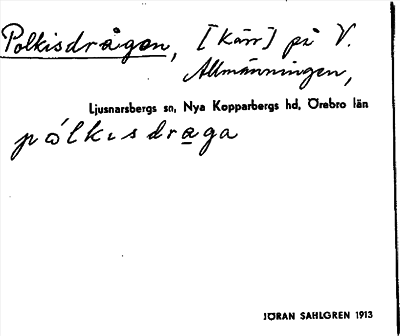 Polkisdrågan, [Kärr] på V.
Allmänningen,
Ljusnarsbergs sn, Nya Kopparbergs hd, Örebro län
pólkisdraga
JÖRAN SAHLGREN 1913